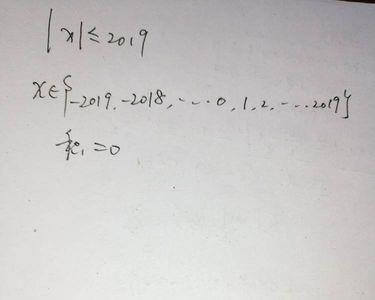 |x|≤2019
x∈{-2019,-2018,·····0,1,2,·····2019}
=0